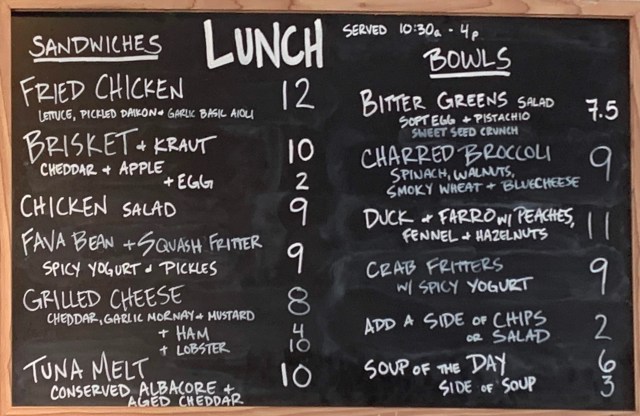 LUNCH
SERVED 10:30a - 4p
SANDWICHES
FRIED CHICKEN 12
LETTUCE, PICKLED DAIKON + GARLIC BASIL AIOLI
BRISKET + KRAUT 10
CHEDDAR + APPLE
+ EGG 2
CHICKEN SALAD 9
FAVA BEAN + SQUASH FRITTER 9
SPICY YOGURT + PICKLES
GRILLED CHEESE 8
CHEDDAR, GARLIC MORNAY + MUSTARD
+ HAM 4
+ LOBSTER 10
TUNA MELT 10
CONSERVED ALBACORE +
AGED CHEDDAR
BOWLS
BITTER GREENS SALAD 7.5
SOFT EGG + PISTACHIO
SWEET SEED CRUNCH
CHARRED BROCCOLI 9
SPINACH, WALNUTS,
SMOKY WHEAT + BLUECHEESE
DUCK + FARRO W/ PEACHES, 11
FENNEL + HAZELNUTS
CRAB FRITTERS 9
W/ SPICY YOGURT
ADD A SIDE OF CHIPS 2
OR SALAD
SOUP OF THE DAY 6
SIDE OF SOUP 3